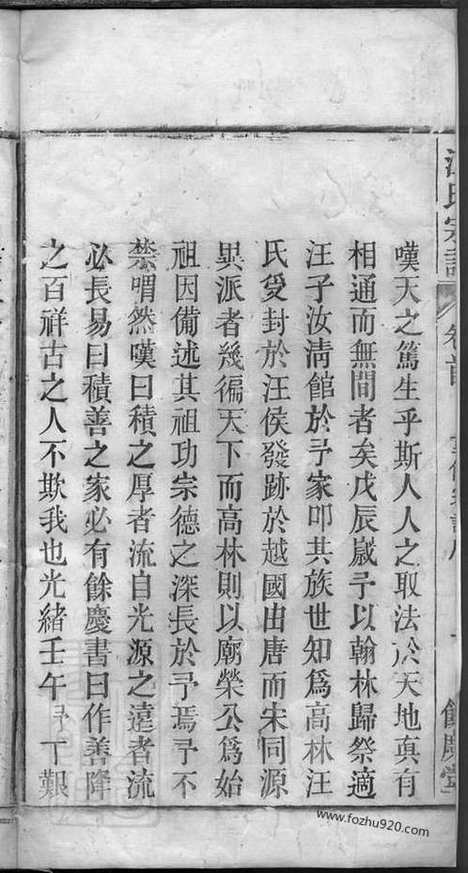 汪氏宗譜 卷首 餘慶堂
嘆天之篤生乎斯人人之取法於天地真有
相通而無間者矣戊辰歲予以翰林歸祭適
汪子汝清館於予家叩其族世知爲高林汪
氏受封於汪侯發跡於越國由唐而宋同源
異派者幾徧天下而高林則以廟榮公爲始
祖因備述其祖功宗德之深長於予焉予不
禁喟然嘆曰積之厚者流自光源之遠者流
必長易曰積善之家必有餘慶書曰作善降
之百祥古之人不欺我也光緒壬午予丁艱
www.fozhu920.com